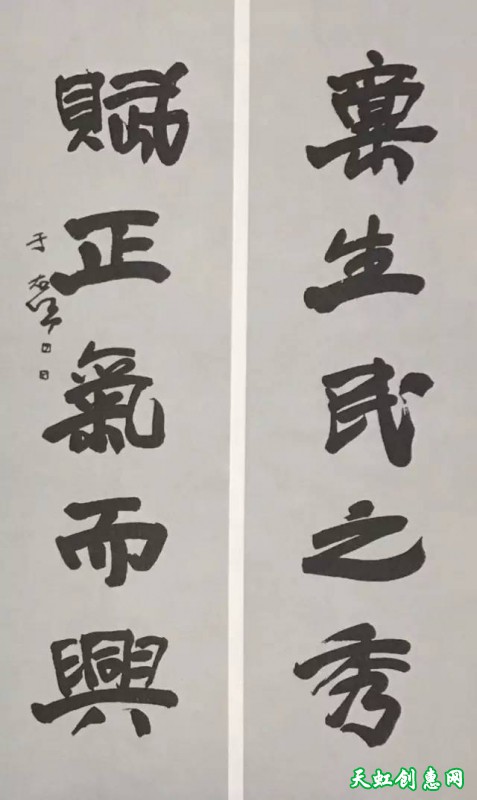 稟生民之秀
賦正氣而興
于右任
天虹创惠网